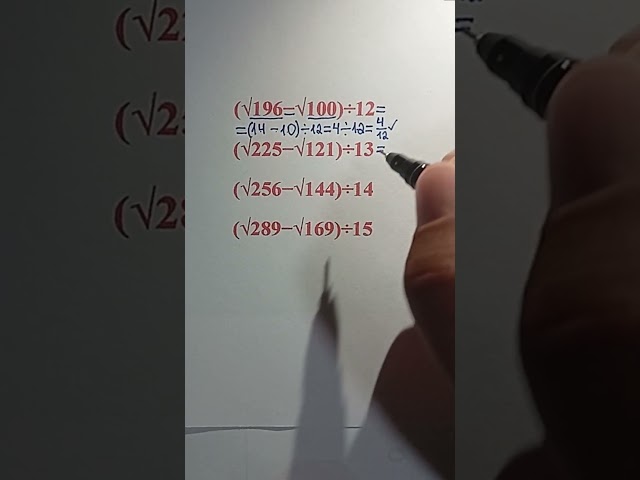 (√196−√100)÷12=
=(14-10)÷12=4÷12=4/12✓
(√225−√121)÷13=
(√256−√144)÷14
(√289−√169)÷15